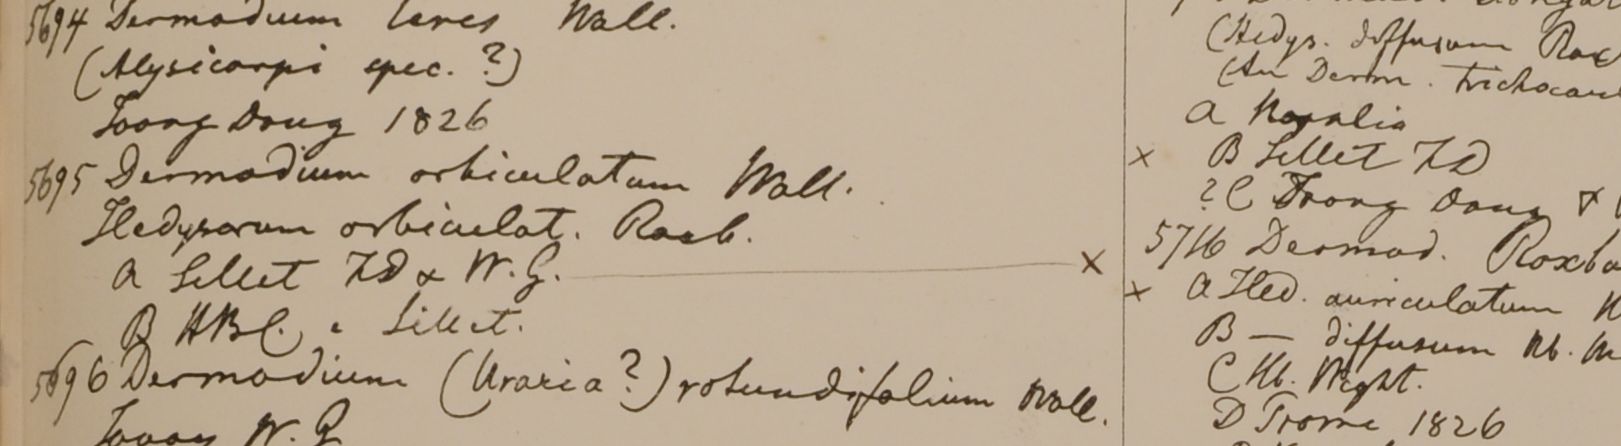 5694 Desmodium teres Wall.
(Alysicarpi spec. ?)
Toong Doug 1826
5695 Desmodium orbiculatum Wall.
Hedysarum orbiculat. Roxb.
A Sillet FD & W.G.
×
B HBC. e Sillet.
5696 Desmodium (Uraria ?) rotundifolium Wall.
W. G
(Hedys. diffusum Rox
(An Desm. trichocau
A Napalia
× B Sillet FD
? C Toong Doug &
5716 Desmod. Roxb
× A Hed. auriculatum
B — diffusum Hb.
C Hb. Wight.
D Trome 1826